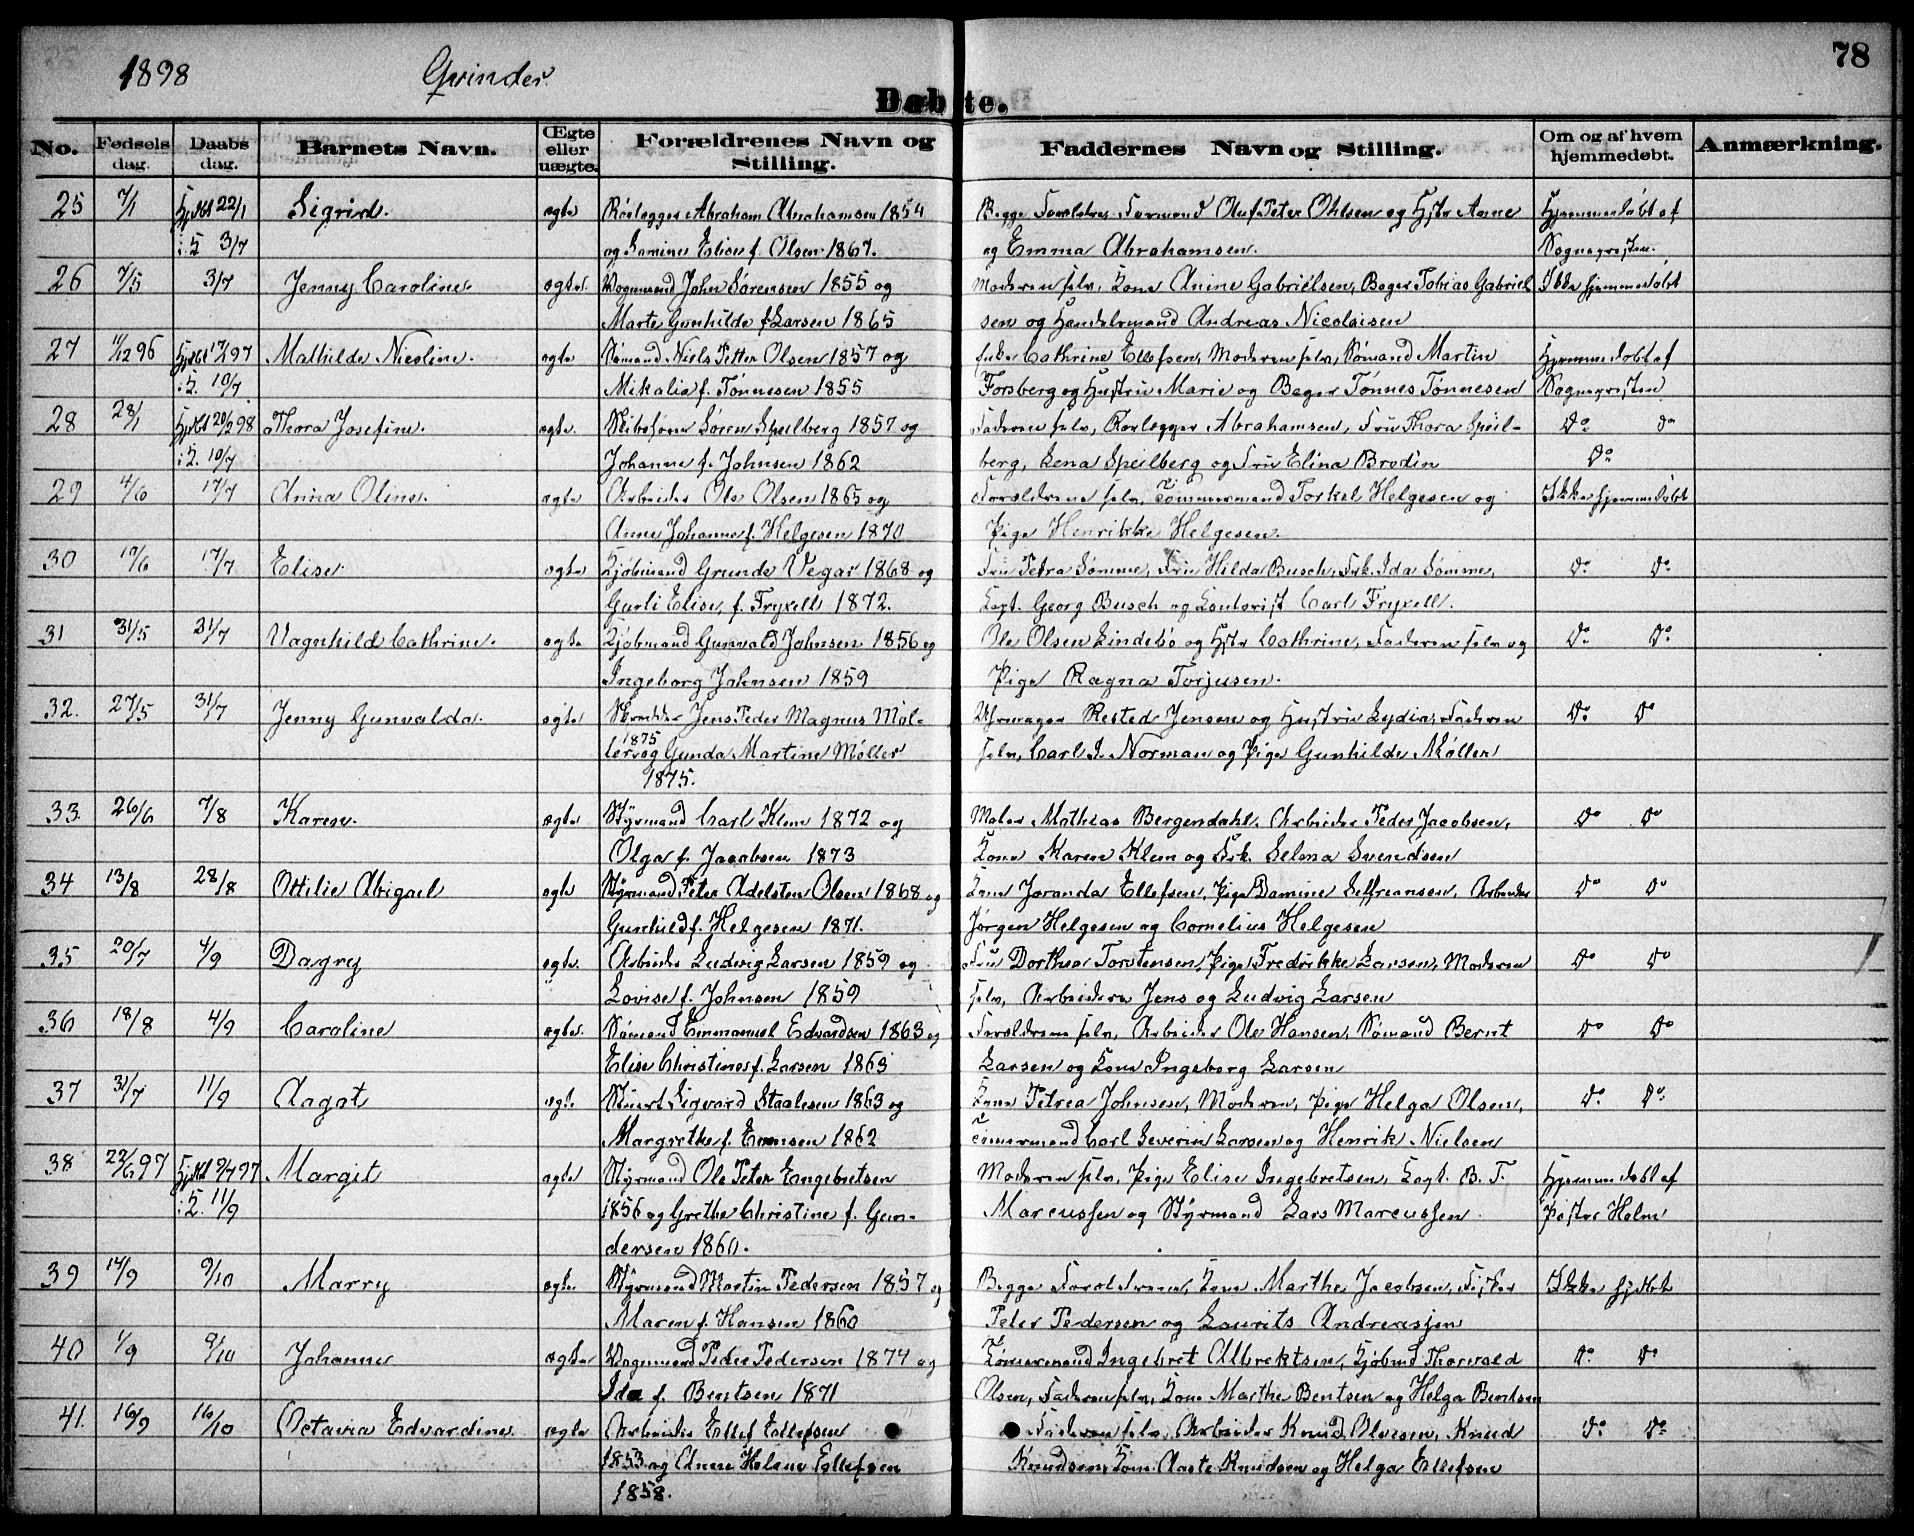 1898 Qvinder.
78
Døbte.
No. Fødselsdag. Daabsdag. Barnets Navn. Ægte eller uægte. Forældrenes Navn og Stilling. Faddernes Navn og Stilling. Om og af hvem hjemmedøbt. Anmærkning.
25 7/1 Hjdbt 22/1 Sigrid. ægte Rørlegger Abraham Abrahamsen 1854 Begge Foreldre. Formand Oluf Peter Ohlsen og Hstr Anne Hjemmedøbt af
i K. 3/7 og Elise f. Olsen 1867. og Emma Abrahamsen. Sogneprsten.
26 7/5 3/7 Jenny Caroline. ægte. Vognmand John Sørensen 1855 og Moderen selv, Kone Anine Gabrielsen, Bager Tobias Gabriel Ikke hjemmedøbt
Marte Gunhilde f. Larsen 1865 sen og Handelsmand Andreas Nicolaisen
27 11/12 96 Hjdbt 17/1 97 Mathilde Nicoline. ægte Sømand Niels Petter Olsen 1857 og Enke Cathrine Ellefsen, Moderen selv, Sømand Martin Hjemmedøbt af
i K. 10/7 Mikalia f. Tønnesen 1855 Forsberg og Hustru Marie og Bager Tønnes Tønnesen Sognepresten
28 28/1 Hjdbt 20/2 98 Thora Josefine. ægte. Skibsfører Søren Speilberg 1857 og Faderen selv, Rørlegger Abrahamsen, Fru Thora Speil- Do do
i K. 10/7 Johanne f. Johnsen 1862 berg, Lena Speilberg og Fru Elina Brodin Do
29 4/6 17/7 Anna Oline. ægte Arbeider Ole Olsen 1865 og Foreldrene selv, Tømmermand Torkel Helgesen og Ikke hjemmedøbt
Anne Johanne f. Helgesen 1870 Pige Henrikke Helgesen.
30 19/6 17/7 Elise. ægte Kjøbmand Grunde Vegar 1868 og Fru Petra Sømme, Fru Hilda Busch, Frk. Ida Sømme, Do Do
Gurli Elise f. Fryxell 1872. Kapt. Georg Busch og Kontorist Carl Fryxell.
31 31/5 31/7 Vagnhild Cathrine. ægte Kjøbmand Gunvald Johnsen 1856 og Ole Olsen Lindebø og Hstr Cathrine, Faderen selv og Do Do
Ingeborg Johnsen 1859 Pige Ragna Torjusen.
32. 27/5 31/7 Jenny Gunvalda. ægte Skredder Jens Peder Magnus Møl- Uhrmager Rested Jensen og Hustru Lydia, Faderen Do Do
ler 1875 og Gunda Martine Møller selv, Carl L. Norman og Pige Gunhilde Møller
1875.
33. 26/6 7/8 Karen. ægte Styrmand Carl Klem 1872 og Maler Mathias Bergendahl, Arbeider Peder Jacobsen, Do Do
Olga f. Jacobsen 1873 Kone Karen Klem og Frk. Selma Svendsen
34 13/8 28/8 Ottilie Abigael ægte Styrmand Peter Adelsten Olsen 1868 og Kone Joranda Ellefsen, Pige Damine Seffreansen, Arbeider Do Do
Gunhild f. Helgesen 1871. Jørgen Helgesen og Cornelius Helgesen
35 20/7 4/9 Dagny ægte. Arbeider Ludvig Larsen 1859 og Fru Dorthea Torstensen, Pige Fredrikke Larsen, Moderen Do Do
Lovise f. Johnsen 1859 selv, Arbeidere Jens og Ludvig Larsen
36 18/8 4/9 Caroline ægte. Sømand Emmanuel Edvardsen 1863 og Foreldrene selv, Arbeider Ole Hansen, Sømand Bernt Do Do
Elise Christine f. Larsen 1863 Larsen og Kone Ingeborg Larsen
37 31/7 11/9 Aagot ægte. Stuert Sigvard Staalesen 1863 og Kone Petrea Johnsen, Moderen, Pige Helga Olsen, Do. Do.
Margrethe f. 1862 Tømmermand Carl Severin Larsen og Henrik Nielsen
38 22/6 97 Hjdbt 9/7 97 Margit ægte Styrmand Ole Peter Engebretsen Moderen selv, Pige Elise Ingebretsen, Kapt. B. T. Hjemmedøbt af
i K. 11/9 1856 og Grethe Christine f. Gun- Marcussen og Styrmand Lars Marcussen Pastor Holm
dersen 1860.
39 14/9 9/10 Marry ægte. Styrmand Martin Pedersen 1857 og Begge Foreldrene, Kone Marthe Jacobsen, Fisker Ikke hjdbt
Maren f. Hansen 1860 Peter Pedersen og Laurits Andreassen
40 1/9 9/10 Johanne ægte Vognmand Peder Pedersen 1874 og Tømmermand Ingebret Albrektsen, Kjøbmd Thorvald Do. Do
Ida f. Bentsen 1871 Olsen, Faderen selv, Kone Marthe Bentsen og Helga Bentsen
41. 16/9 16/10 Octavia Edvardine. ægte Arbeider Ellef Ellefsen Faderen selv, Arbeider Knud Olsen, Knud Do. Do.
1853 og Helene Ellefsen Knudsen, Kone Aaste Knudsen og Helga Ellefsen
1858.